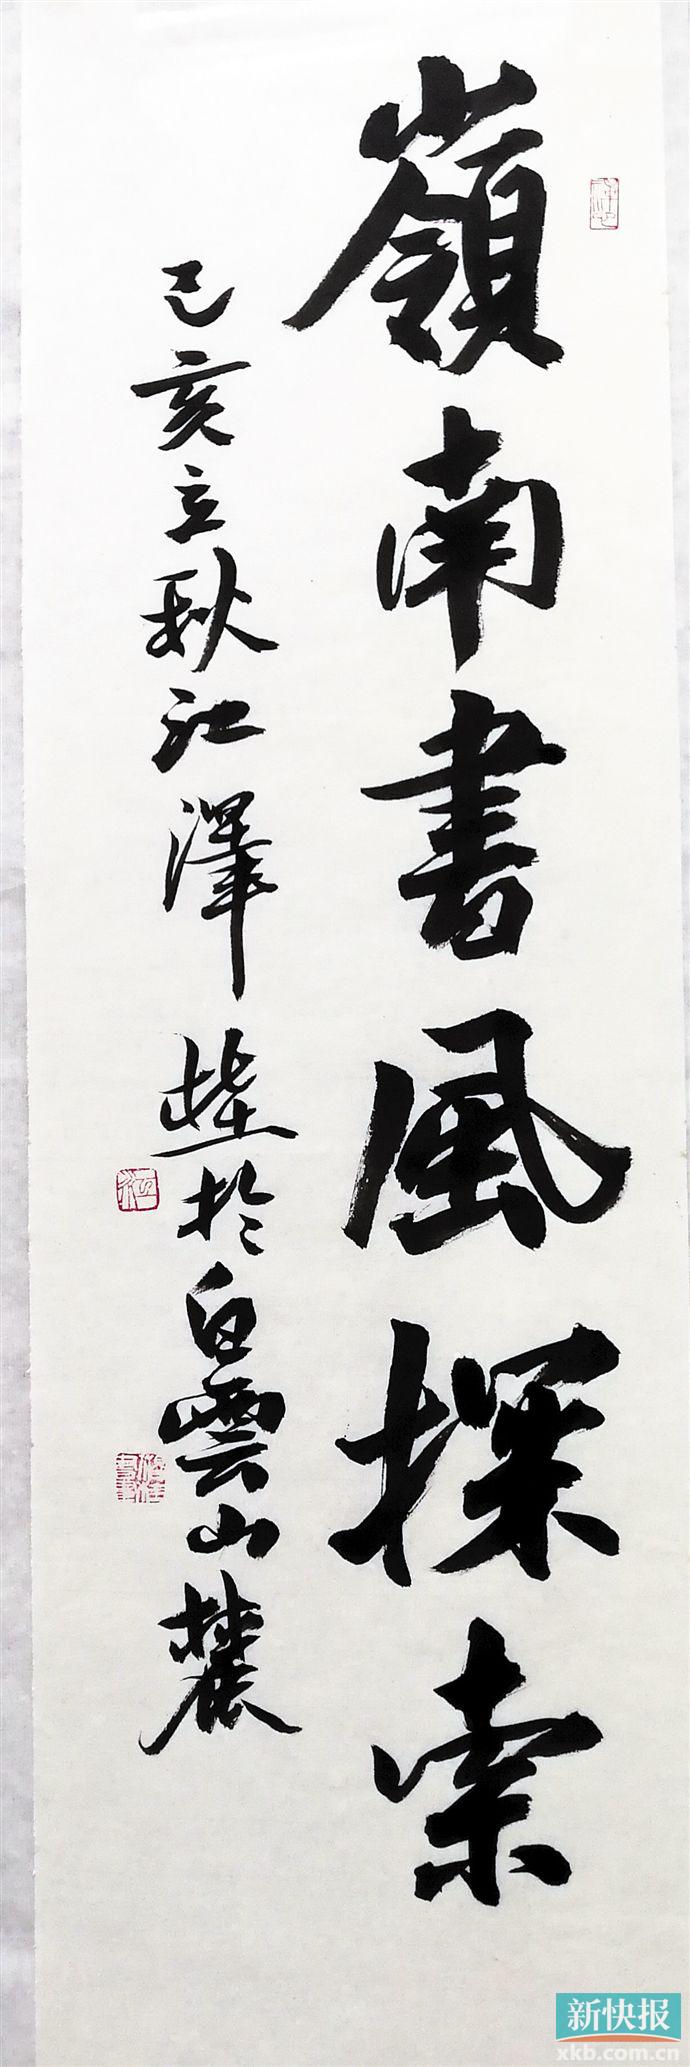 嶺南書風探索
己亥立秋江澤
於白雲山麓
新快报
xkb.com.cn